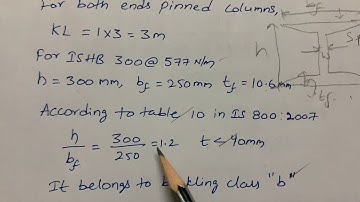 For both ends pinned columns,
KL = 1 x 3 = 3m
For ISHB 300 @ 577 N/m
h = 300 mm, bf = 250mm tf = 10.6mm
According to table 10 in IS 800:2007
h/bf = 300/250 = 1.2 t < 40mm
It belongs to buckling class "b"
bf
h
tf.